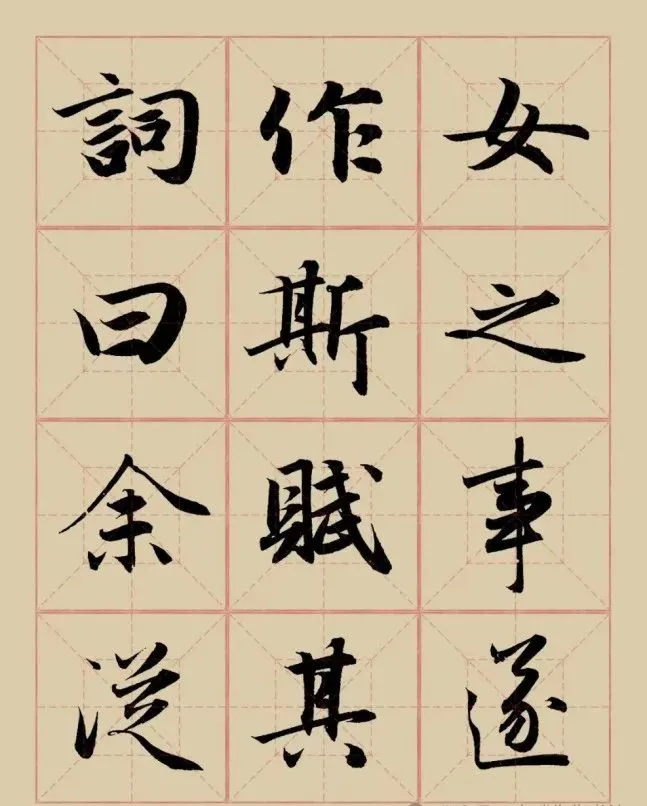 女之事遂
作斯賦其
詞曰余從